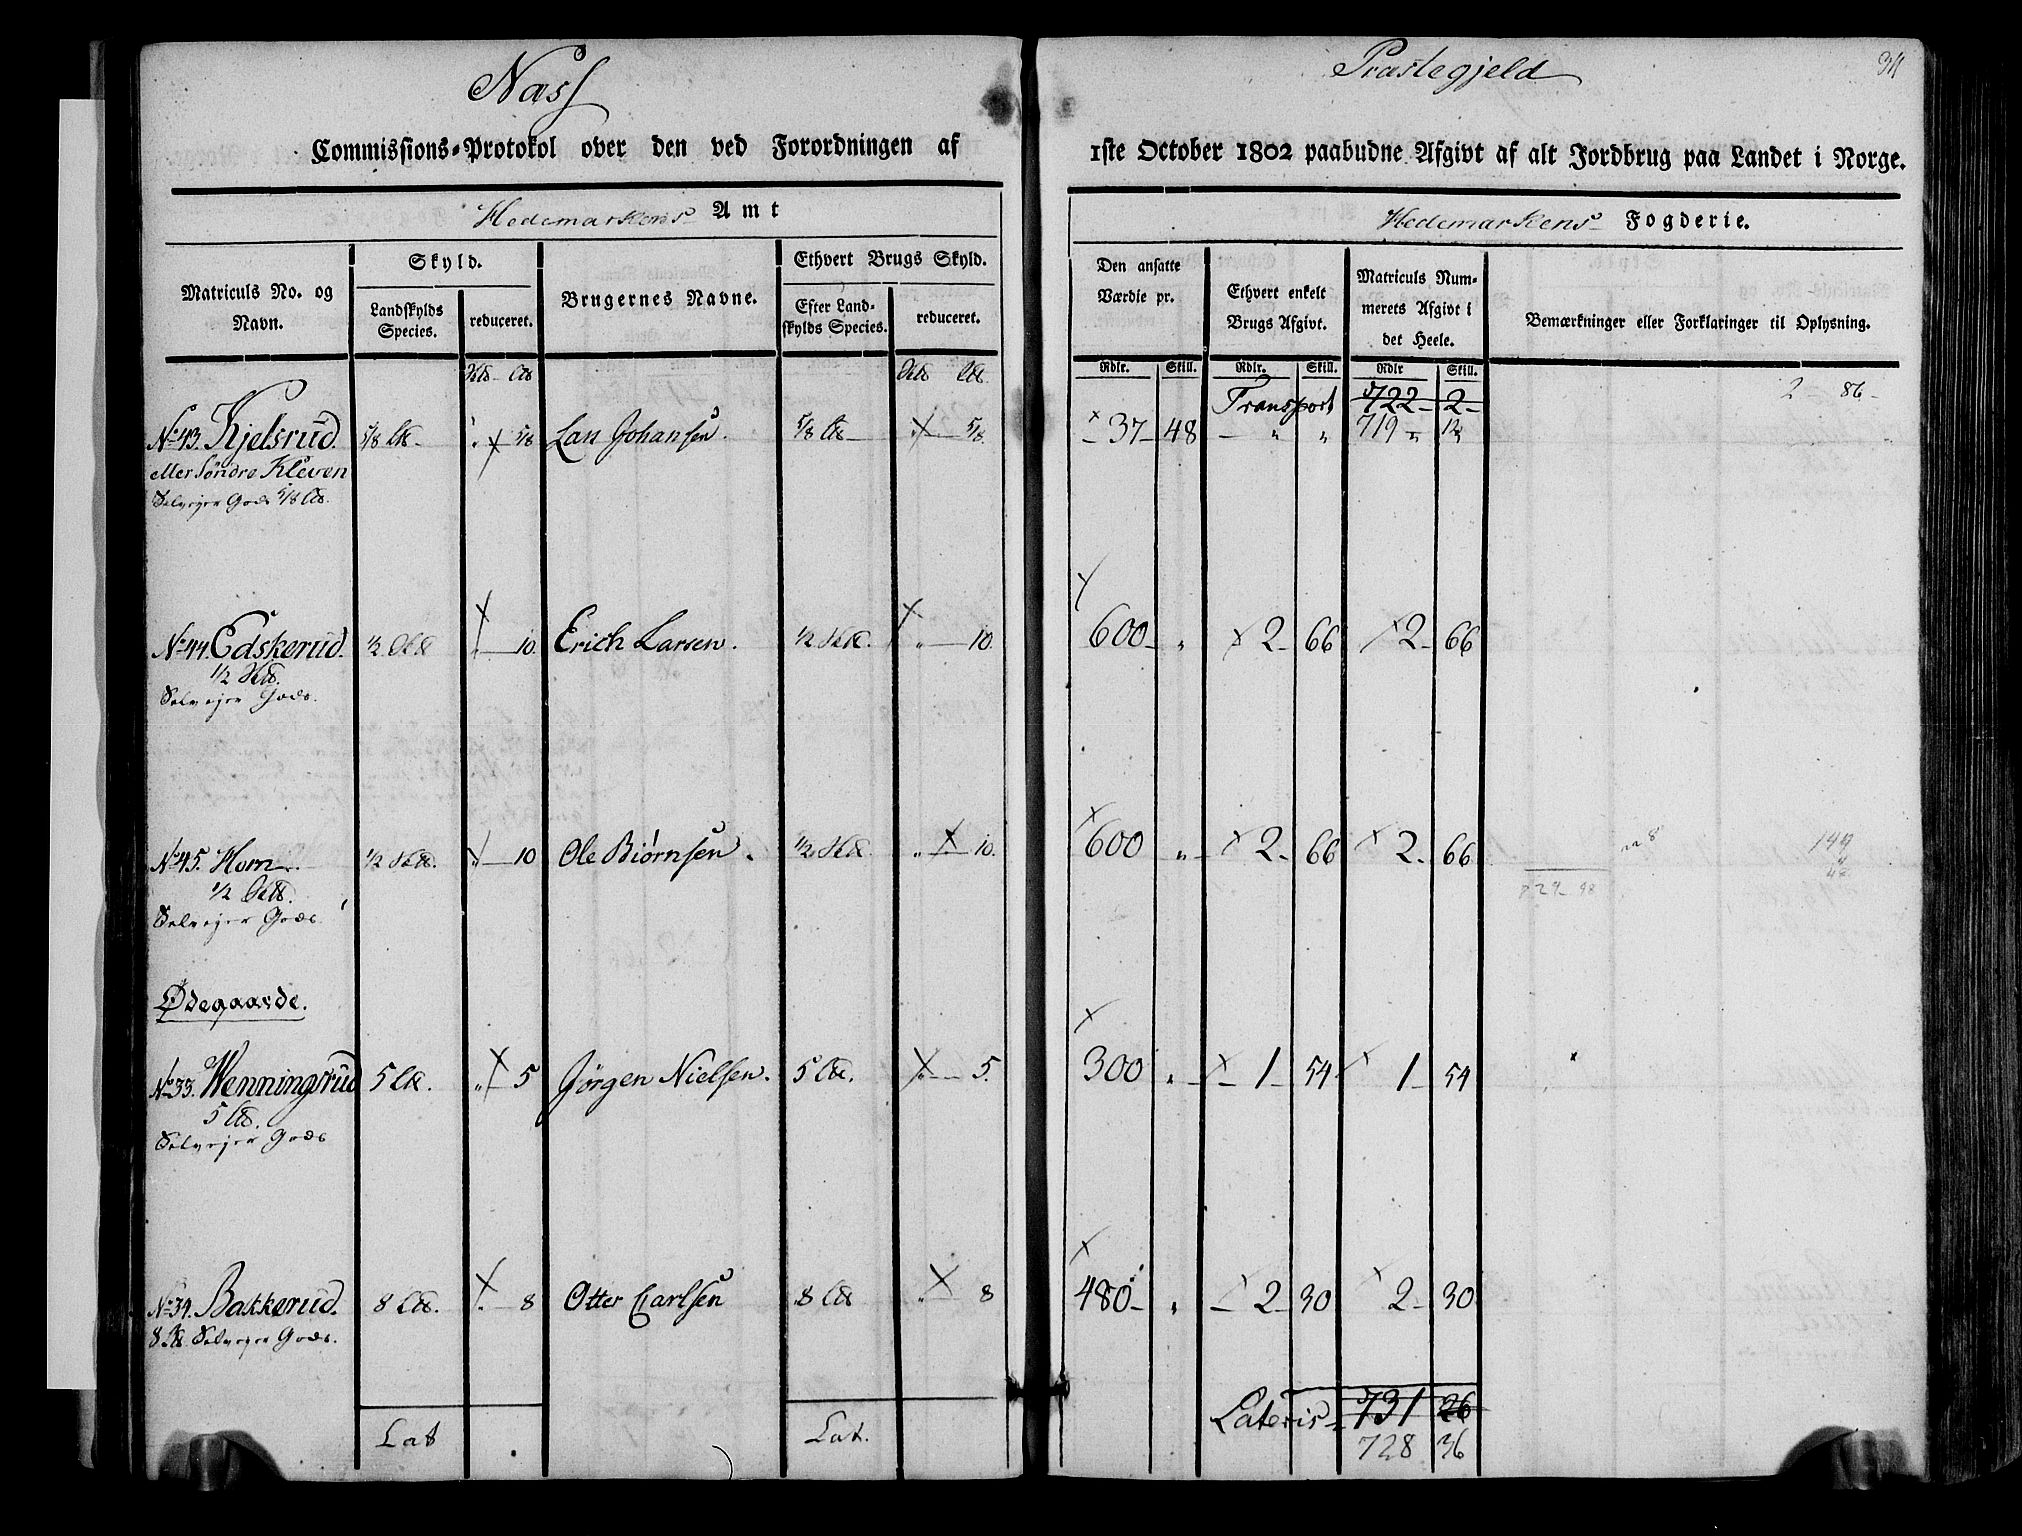 Næss Præstegjeld 34
Commissions-Protokol over den ved Forordningen af 1ste October 1802 paabudne Afgivt af alt Jordbrug paa Landet i Norge.
Hedemarkens Amt
Hedemarkens Fogderie.
Matriculs No. og Navn.
Skyld.
Landskylds Species.
reduceret.
Brugernes Navne.
Ethvert Brugs Skyld.
Efter Landskylds Species.
reduceret.
Den ansatte Værdie pr.
Ethvert enkelt Brugs Afgivt.
Matriculs Nummerets Afgivt i det Heele.
Bemærkninger eller Forklaringer til Oplysning.
Rdlr. Skill. Rdlr. Skill. Rdlr Skill.
Transport 722 2
719 12
2 86
No 43. Kjelsrud 5/8 5/8 Lars Johansen. 5/8 5/8 37 48 " "
eller Søndre Kleven
Selvejer Gods 5/8
No 44. Edskerud. 1/2 " 10 Erich Larsen. 1/2 " 10. 600 " 2 66 2 66
1/2
Selvejer Gods.
No 45. Horn. 1/2 " 10 Ole Biørnsen. 1/2 " 10. 600 " 2 66 2 66
1/2
Selvejer Gods.
Ødegaarde.
No 33. Wenningsrud 5 " 5 Jörgen Nielsen. 5 " 5. 300 " 1 54 1 54
5
Selvejer Gods
No 34. Bakkerud. 8 " 8 Otter Carlsen 8 " 8 480 " 2 30 2 30
8 Selvejer Gods.
Lat Lat. Lateris 731 26
728 36